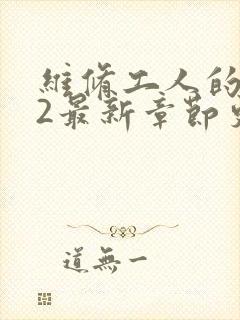 維脩工人的
2最新章節
道無一